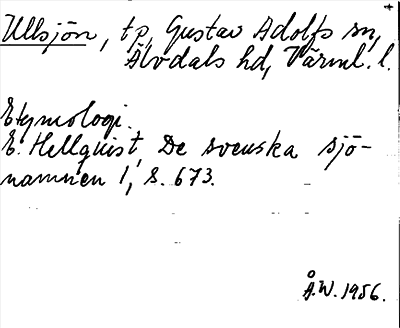 Ullsjön, tp, Gustav Adolfs sn,
Älvdals hd, Värml. l.
Etymologi.
E. Hellquist, De svenska sjö-
namnen 1, s. 673.
Å.W. 1956.